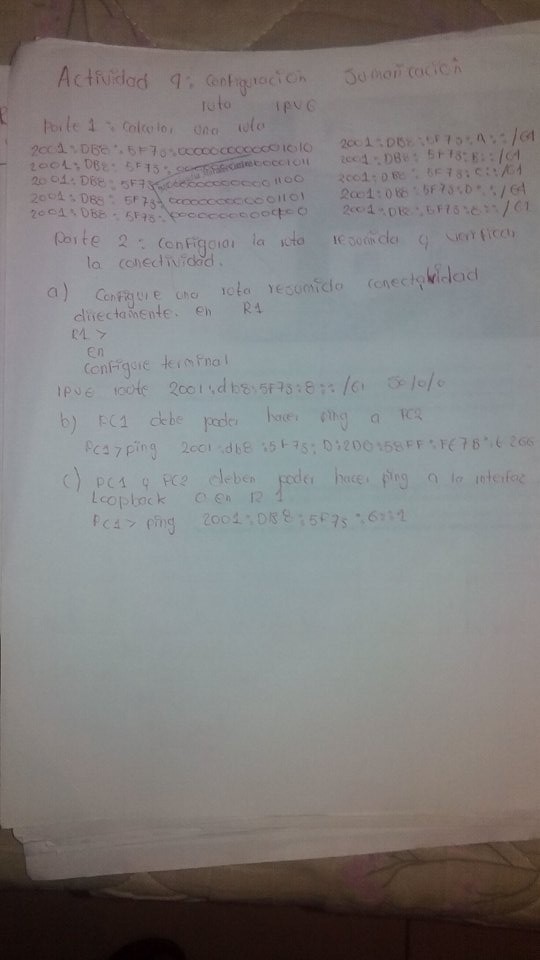 Actividad 9: Configuracion Sumarizacion
ruta IPV6
Parte 1: Calcular una ruta
2001:DB8:5F73:0000000000001010 2001:DB8:5F73:A::/64
2001:DB8:5F73:0000000000001011 2001:DB8:5F73:B::/64
2001:DB8:5F73:0000000000001100 2001:DB8:5F73:C::/64
2001:DB8:5F73:0000000000001101 2001:DB8:5F73:D::/64
2001:DB8:5F73: 2001:DB8:5F73:
Parte 2: Configurar la ruta resumida y verificar
la conectividad.
a) Configure una ruta resumida
directamente. en R1
R1>
en
Configure terminal
IPV6 route 2001:db8:5F73:8::/61 S0/0/0
b) PC1 debe poder hacer ping a PC2
PC1>ping 2001:db8:5F73:D:2D0:58FF:FE7B:
c) PC1 y PC2 deben poder hacer ping a la interfaz
Loopback 0 en R1
PC1> ping 2001:DB8:5F73:6::1